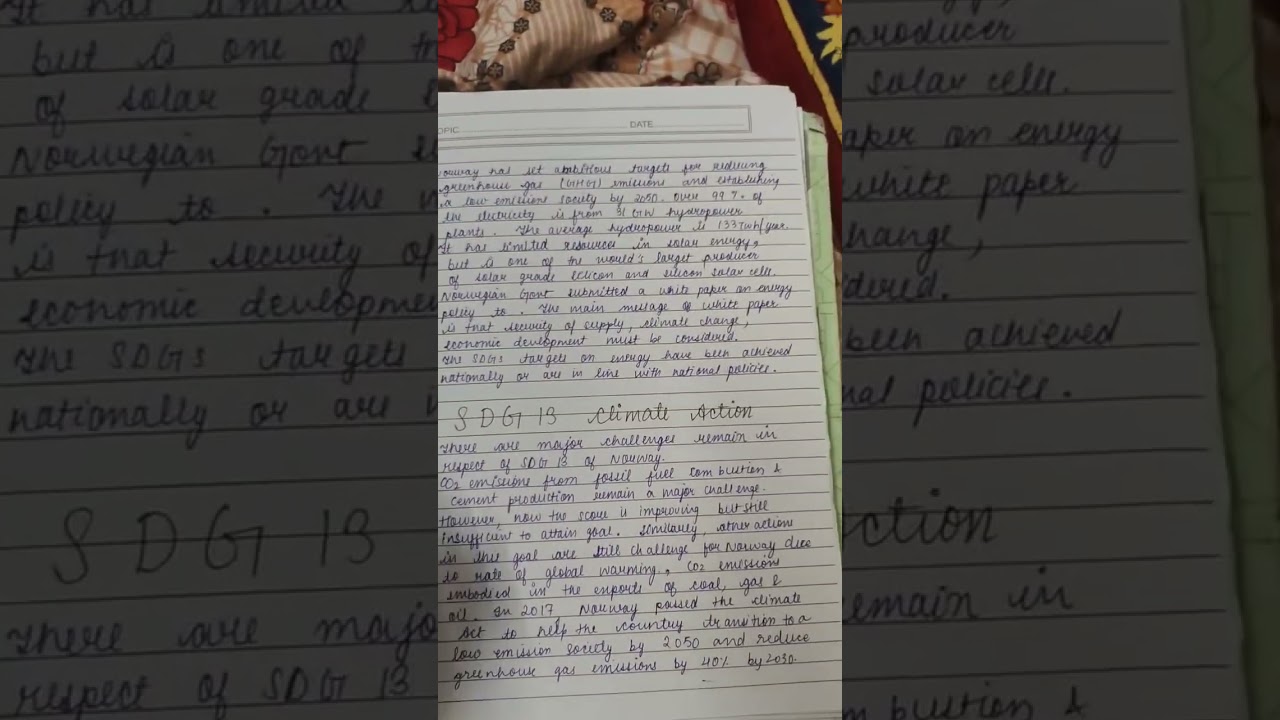 OPIC DATE
orway has set ambitious targets for reducing
greenhouse gas (GHG) emissions and establishing
a low emissions society by 2050. Over 99 % of
the electricity is from 31 GW hydropower
plants. The average hydropower is 133 TWh/year.
It has limited resources in solar energy,
but is one of the would's larget producer
of solar grade silicon and silicon solar cells.
Norwegian Govt submitted a white paper on energy
policy to . The main message of white paper
is that security of supply, climate change,
economic development must be considered.
The SDGs targets on energy have been achieved
nationally or are in line with national policies.
SDG 13 Climate Action
There are major challenges remain in
respect of SDG 13 of Norway.
CO2 emissions from fossil fuel combustion &
cement production remain a major challenge.
However, now the score is improving but still
insufficient to attain goal. Similarly, other actions
in this goal are still challenge for Norway due
to rate of global warming, CO2 emissions
embodied in the exports of coal, gas &
oil. In 2017, Norway passed the climate
Act to help the country transition to a
low emission society by 2050 and reduce
greenhouse gas emissions by 40% by 2030.